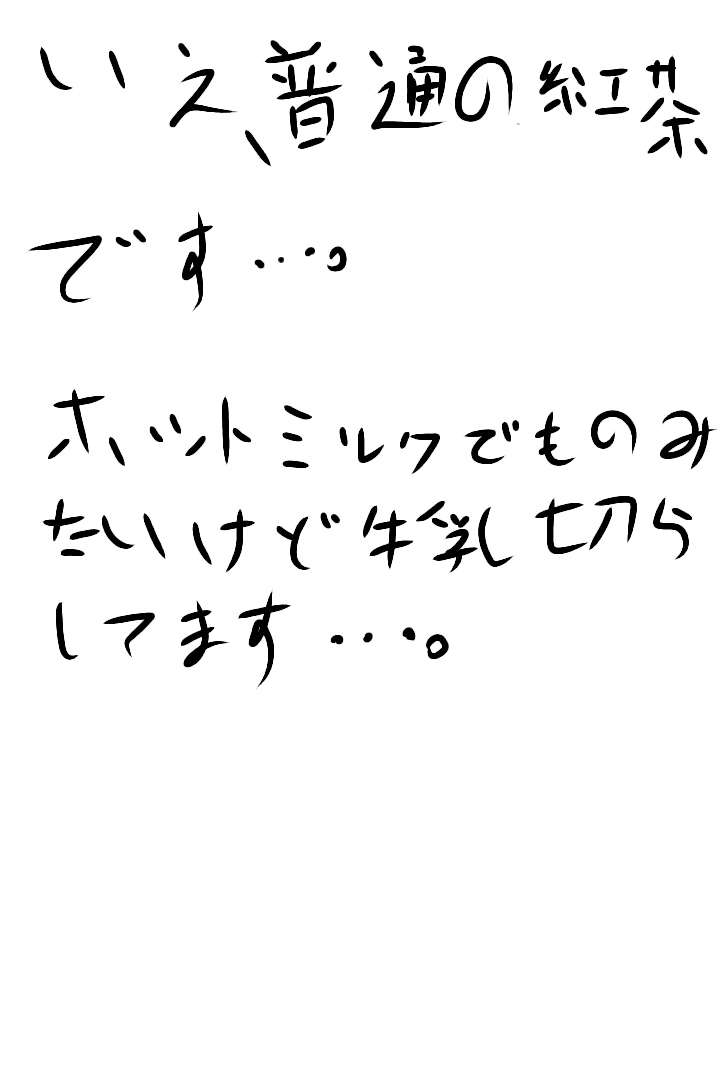 いえ、普通の紅茶
です…。
ホットミルクでものみ
たいけど牛乳切ら
してます…。